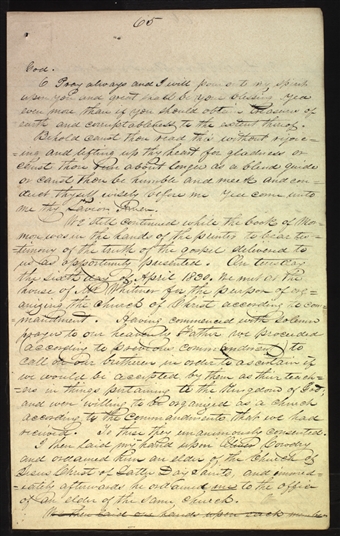 65
God.
& Pray always and I will pour out my spirit
upon you and great shall be your blessing yea
even more than if you should obtain treasures of
earth and corruptableness to the extent thereof.
Behold canst thou read this without rejoic=
=ing and lifting up thy heart for gladness or
canst thou run about longer as a blind guide
or canst thou be humble and meek and con=
=duct thyself wisely before me yea come unto
me thy Savior. Amen.
We still continued while the book of Mor
mon was in the hands of the printer to bear tes
timony of the truth of the gospel delivered to
us as opportunity presented. On tuesday
the sixth day of April 1830, we met at the
house of Whitmer for the purpose of or=
ganizing the Church of Christ according to com
mandment. Having commenced with solemn
prayer to our heavenly Father we proceeded
(according to previous commandment) to
call on our brethren in order to ascertain if
we would be accepted by them as their teach=
ers in things pertaining to the kingdom of God,
and were willing to be organized as a church
according to the commandments, that we had
received. To this they unanimously consented.
I then laid my hand upon Oliver Cowdry
and ordained him an elder of the Church of
Jesus Christ of Latter Day Saints, and immed=
=iately afterwards he ordained me to the office
of an elder of the same church.
We then laid our hands upon each